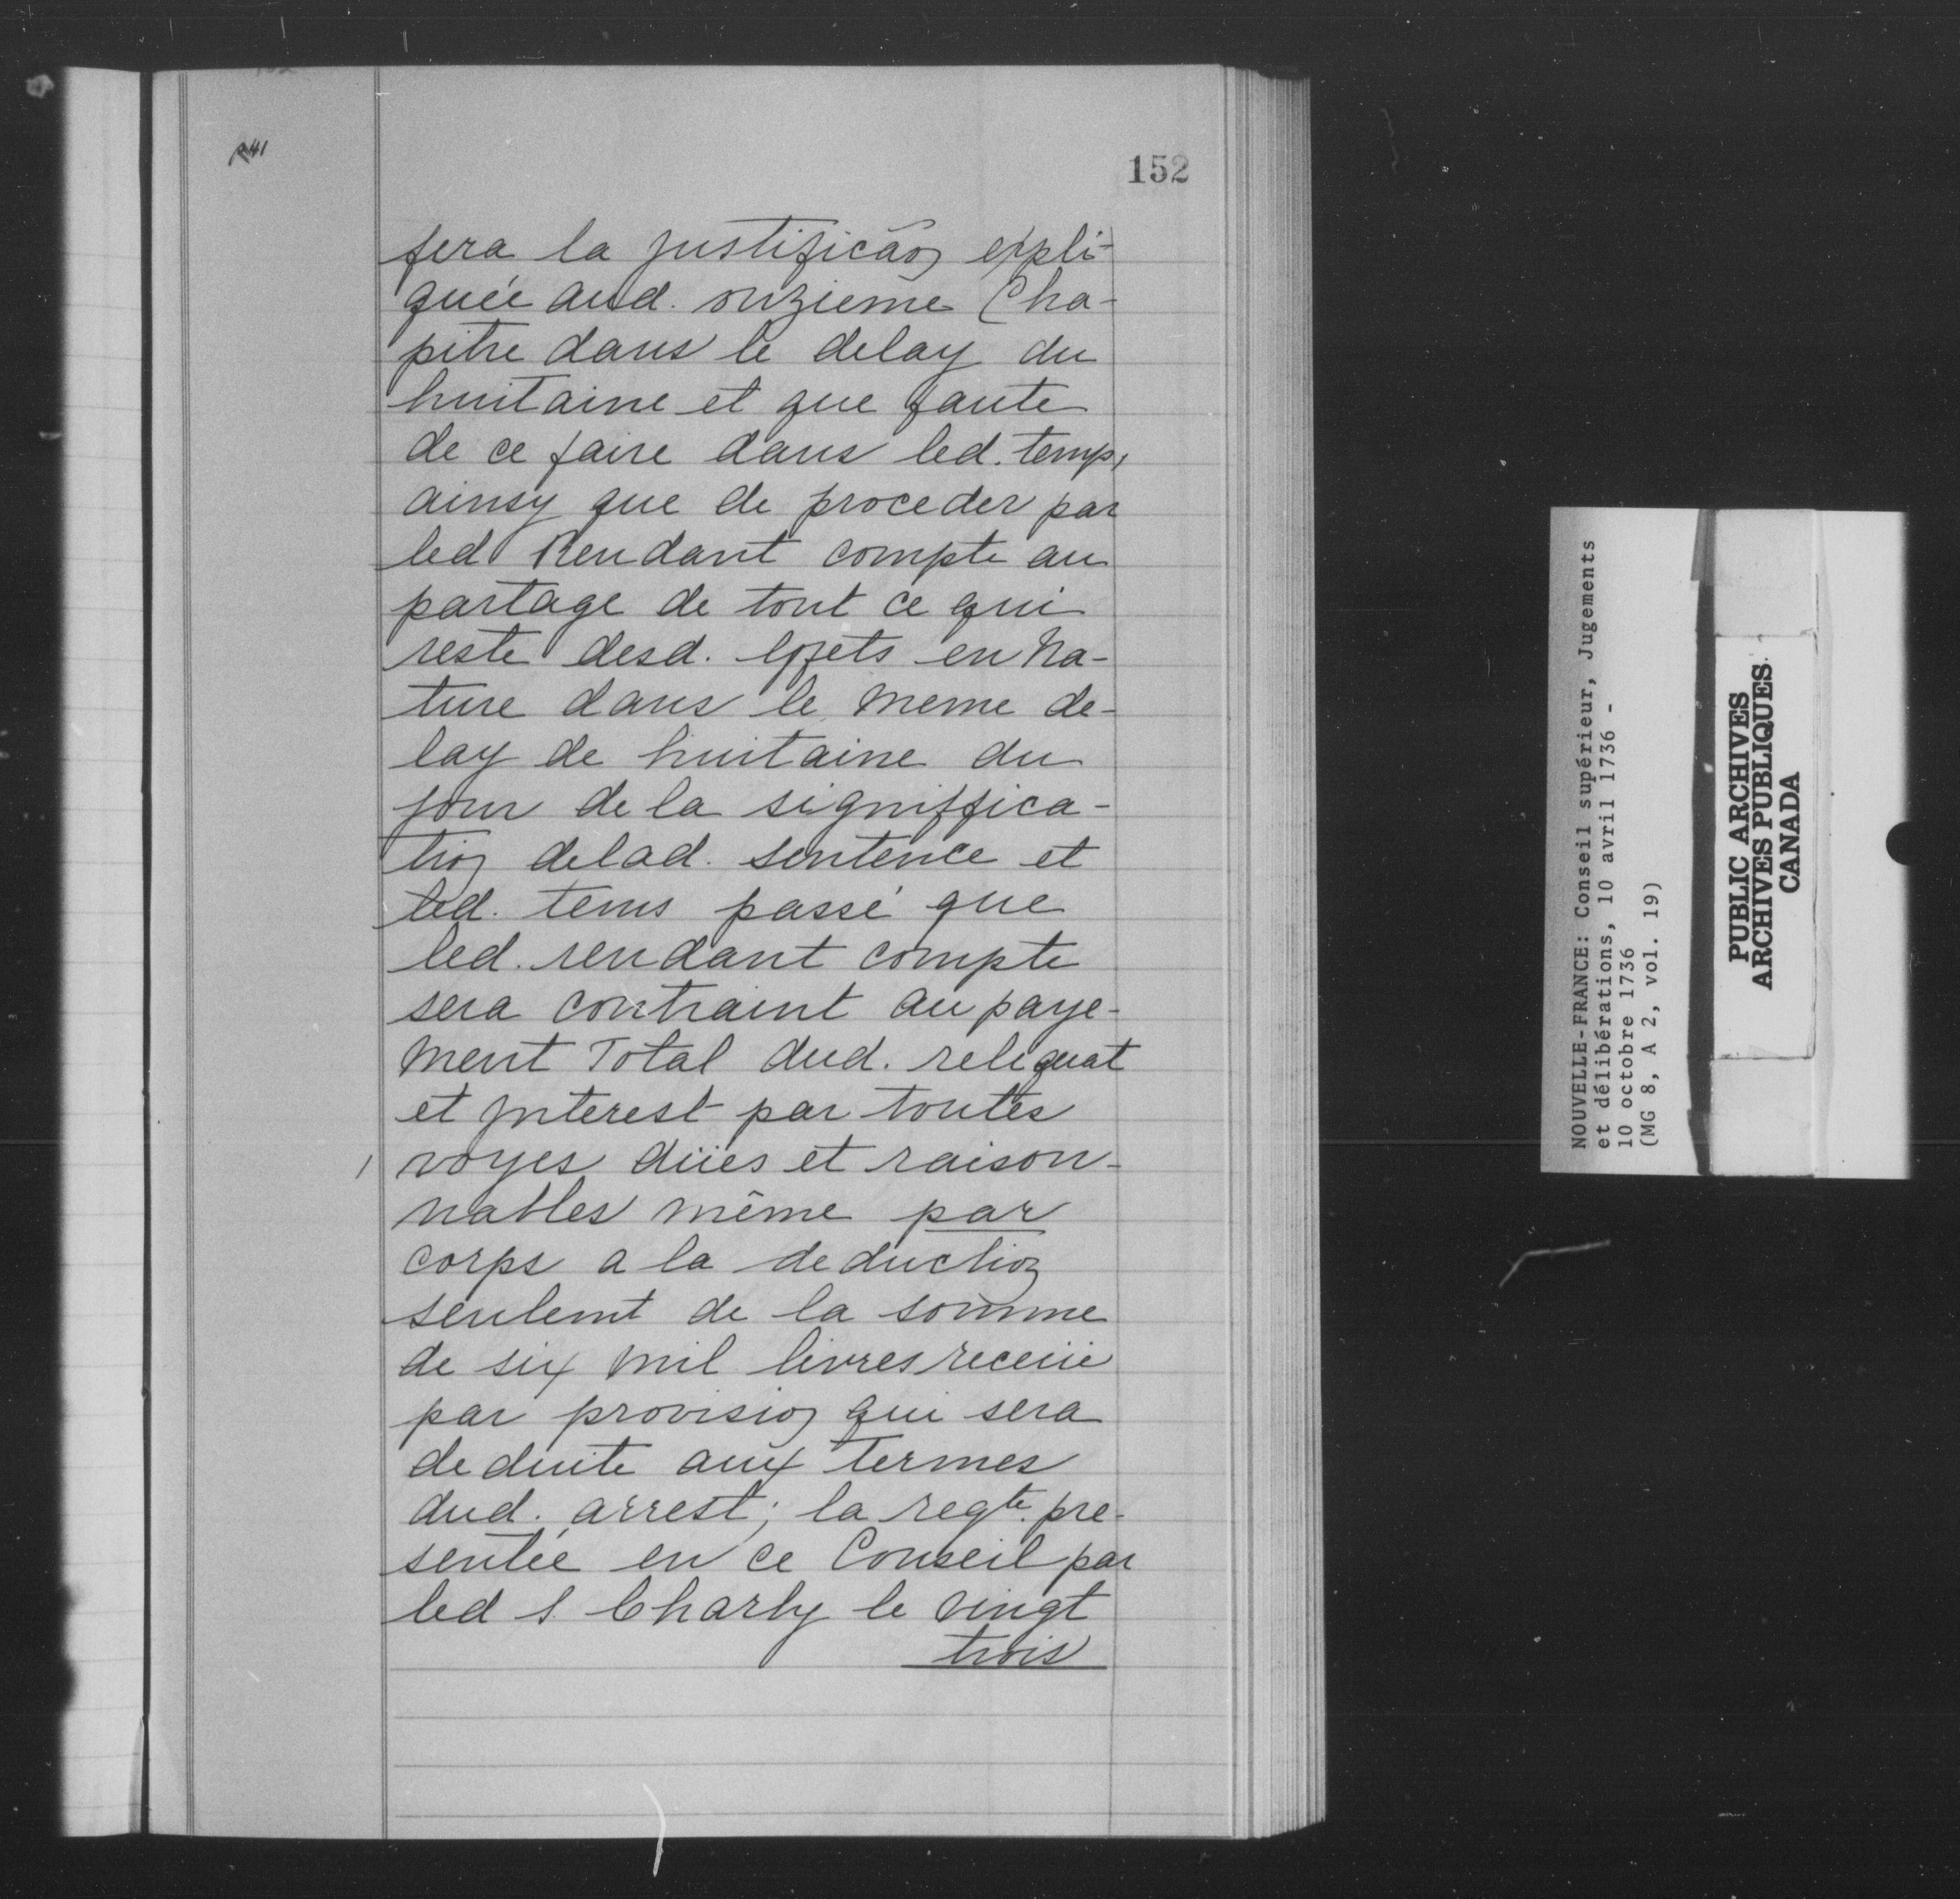 P41
152
fera la justificaõn expli-
quée aud. onzieme Cha-
pitre dans le delay du
huitaine et que faute
de ce faire dans led. temps
ainsy que de proceder par
led Rendant compte au
partage de tout ce qui
reste desd. effets en Na-
ture dans le meme de-
lay de huitaine du
jour de la signiffica-
tion delad. sentence et
led. tems passé que
led. rendant compte
sera contraint au paye-
ment Total dud. reliquat
et jnterest par toutes
voyes düies et raison-
nables même par
corps a la deduction
seulemt de la somme
de six mil livres receüe
par provision qui sera
deduite aux termes
dud. arrest; la reqte. pre-
sentée en ce Conseil par
led S. Charly le vingt
trois
NOUVELLE-FRANCE: Conseil supérieur, Jugements
et délibérations, 10 avril 1736 -
10 octobre 1736
(MG 8, A 2, vol. 19)
PUBLIC ARCHIVES
ARCHIVES PUBLIQUES
CANADA